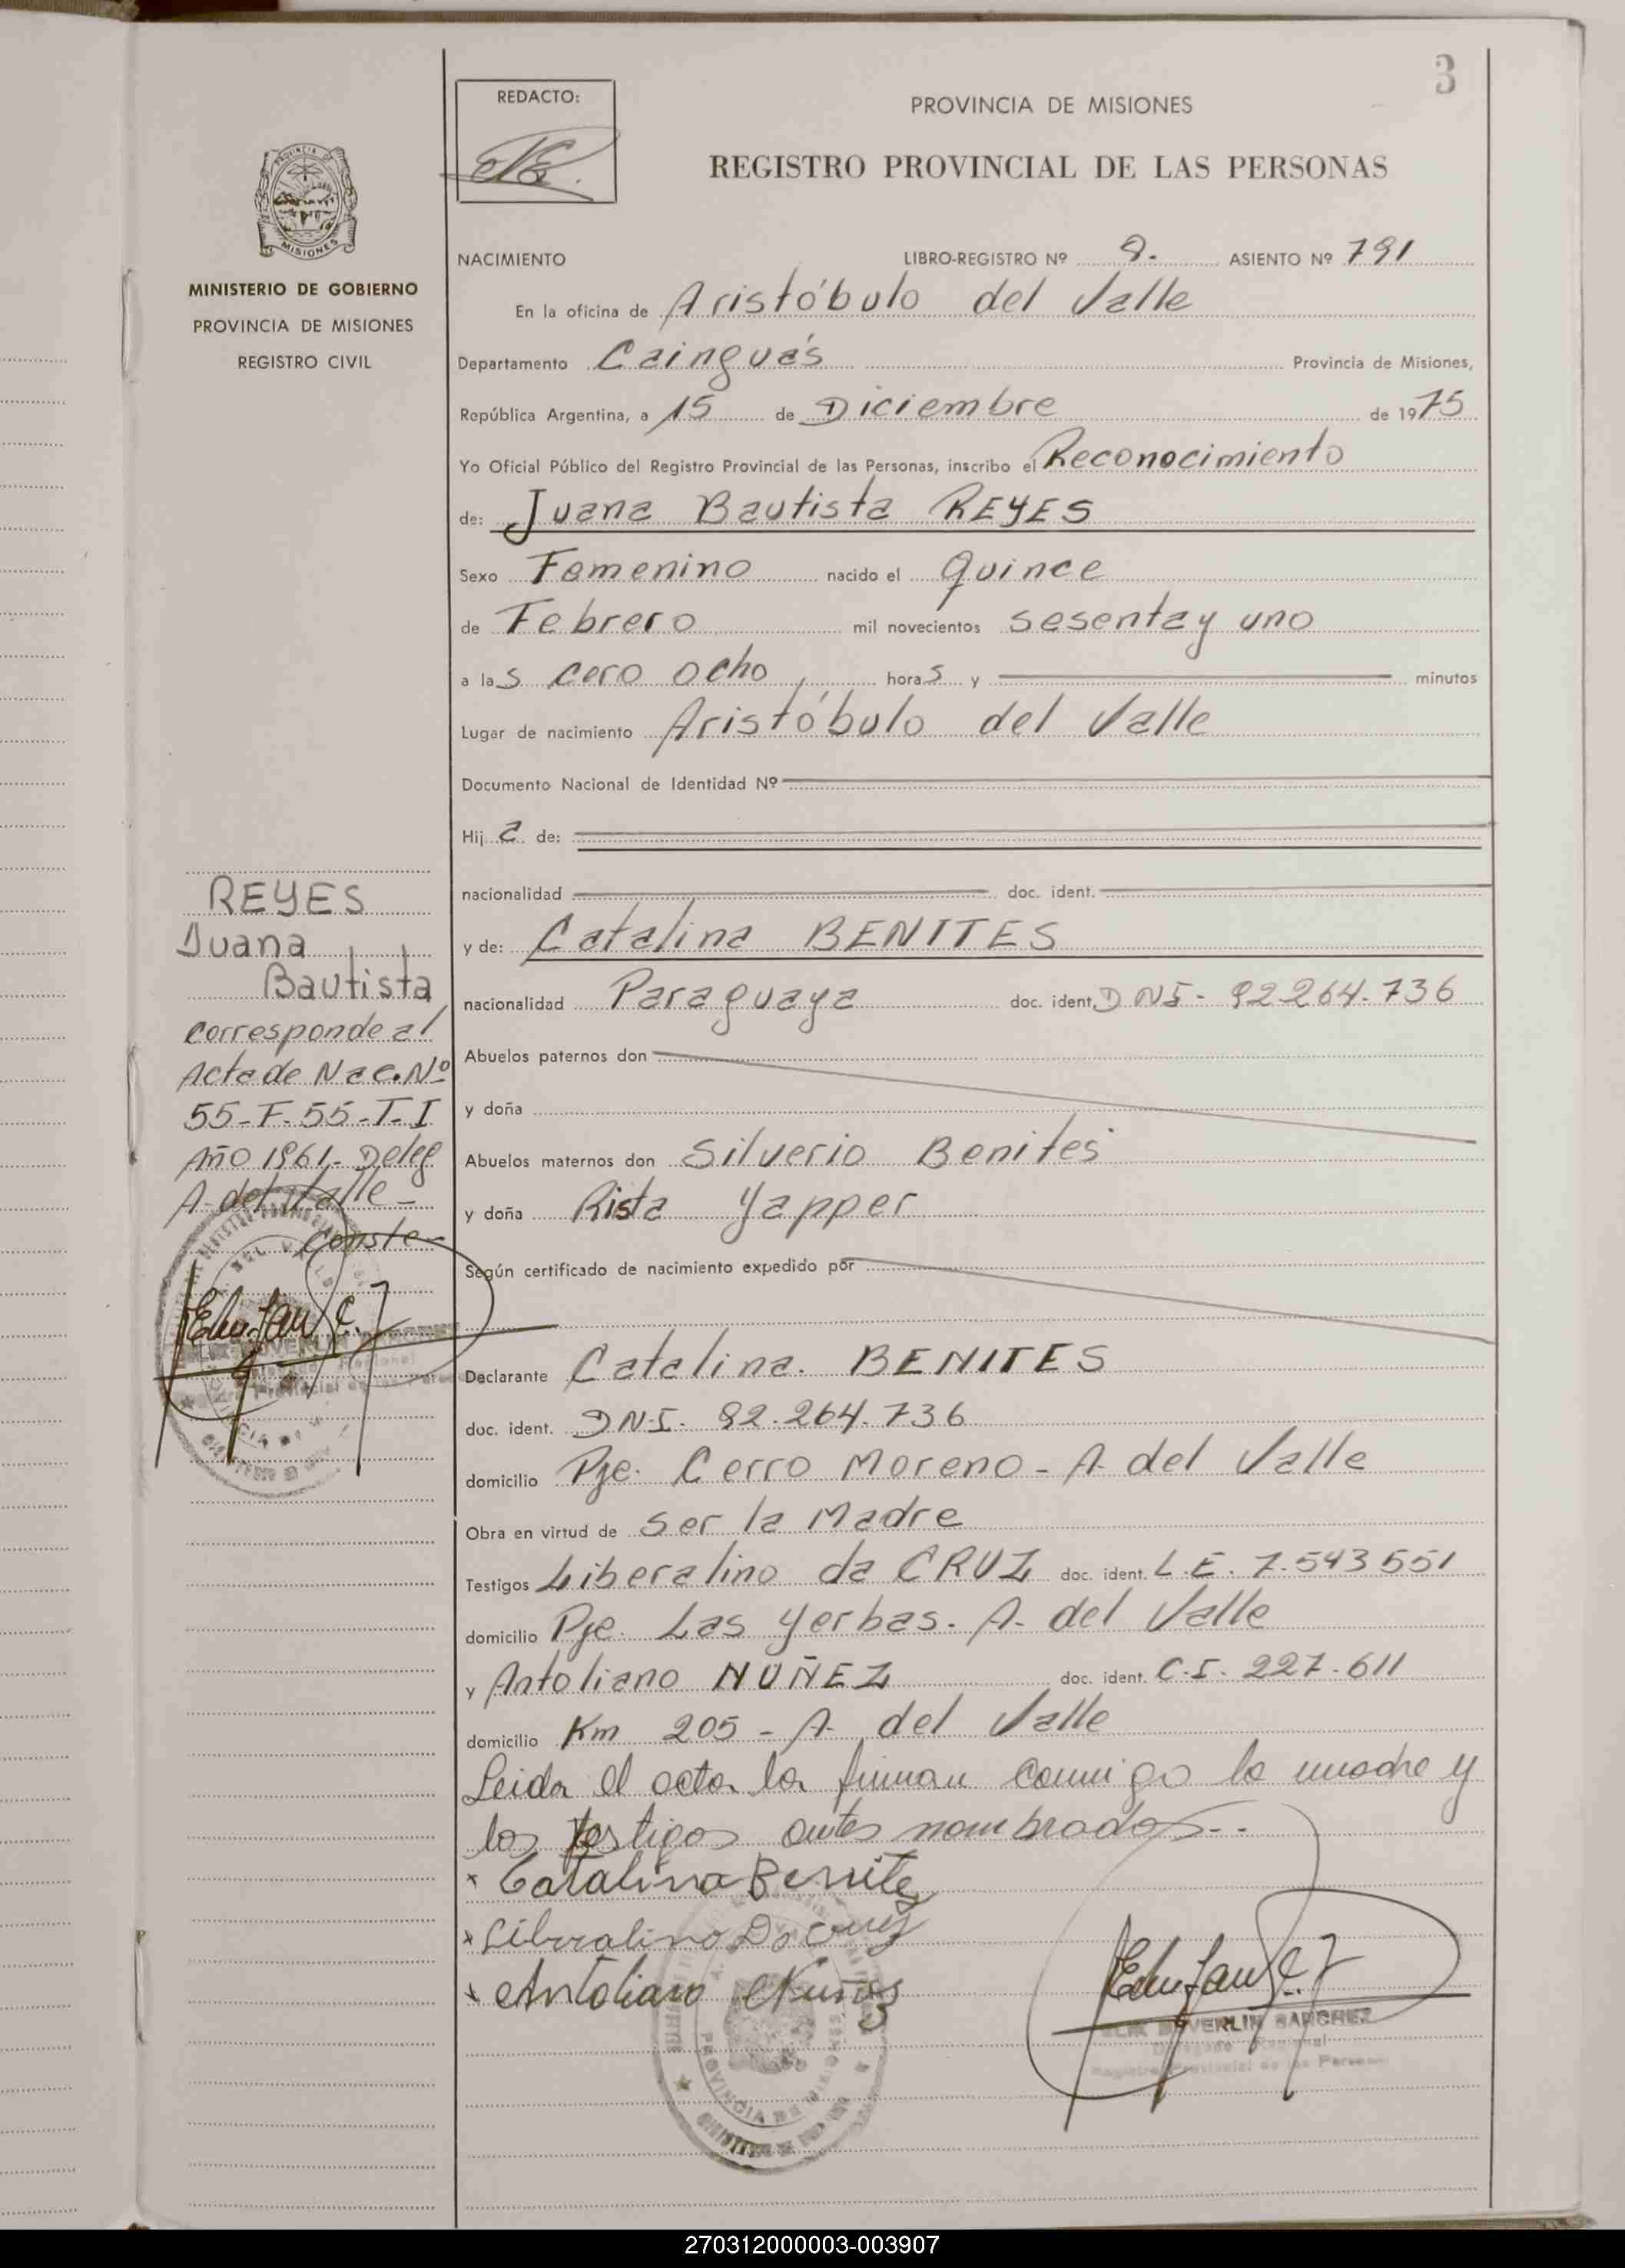 3
REDACTO:
PROVINCIA DE MISIONES
REGISTRO PROVINCIAL DE LAS PERSONAS
MISIONES
MINISTERIO DE GOBIERNO
PROVINCIA DE MISIONES
REGISTRO CIVIL
NACIMIENTO LIBRO-REGISTRO Nº 9. ASIENTO Nº 791
En la oficina de Aristóbulo del Valle
Departamento Cainguás Provincia de Misiones,
República Argentina, a 15 de Diciembre de 1975
Yo Oficial Público del Registro Provincial de las Personas, inscribo el Reconocimiento
de: Juana Bautista REYES
Sexo Femenino nacido el Quince
de Febrero mil novecientos sesenta y uno
a las cero ocho horas y minutos
Lugar de nacimiento Aristóbulo del Valle
Documento Nacional de Identidad Nº
Hija de:
nacionalidad doc. ident.
y de: Catalina BENITES
nacionalidad Paraguaya doc. ident. DNI- 92.264.736
Abuelos paternos don
y doña
Abuelos maternos don Silverio Benites
y doña Rista Yapper
Según certificado de nacimiento expedido por
Declarante Catalina. BENITES
doc. ident. DN.I. 92.264.736
domicilio Pje. Cerro Moreno - A- del Valle
Obra en virtud de ser la Madre
Testigos Liberalino da CRUZ doc. ident. L.E. 7.543551
domicilio Pje. Las Yerbas. A- del Valle
y Antoliano NUÑEZ doc. ident. C.I. 227.611
domicilio Km 205 - A- del Valle
Leida el acta la firman conmigo la madre y
los testigos antes nombrados--
x Catalina Benites
x Liberalino Da cruz
x Antoliano Nuñes
REYES
Juana
Bautista
corresponde al
Acta de Nac. Nº
55-F.55-T-I
Año 1961- Deleg
A- del Valle-
Conste-
VERLIN SANCHEZ
Delegado Regional
Registro Provincial de las Personas
PROVINCIA DE MISIONES
270312000003-003907